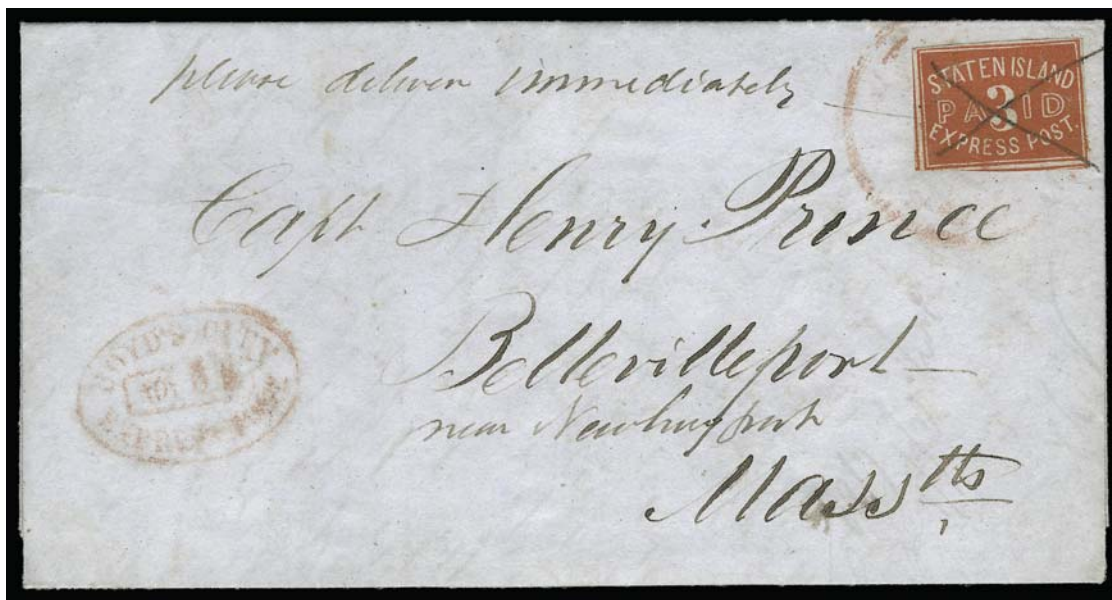 please deliver immediately
STATEN ISLAND
PAID
3
EXPRESS POST.
Capt Henry Prince
Bellevilleport
near Newburyport
Mass tts
BOYD'S CITY
EXPRESS POST